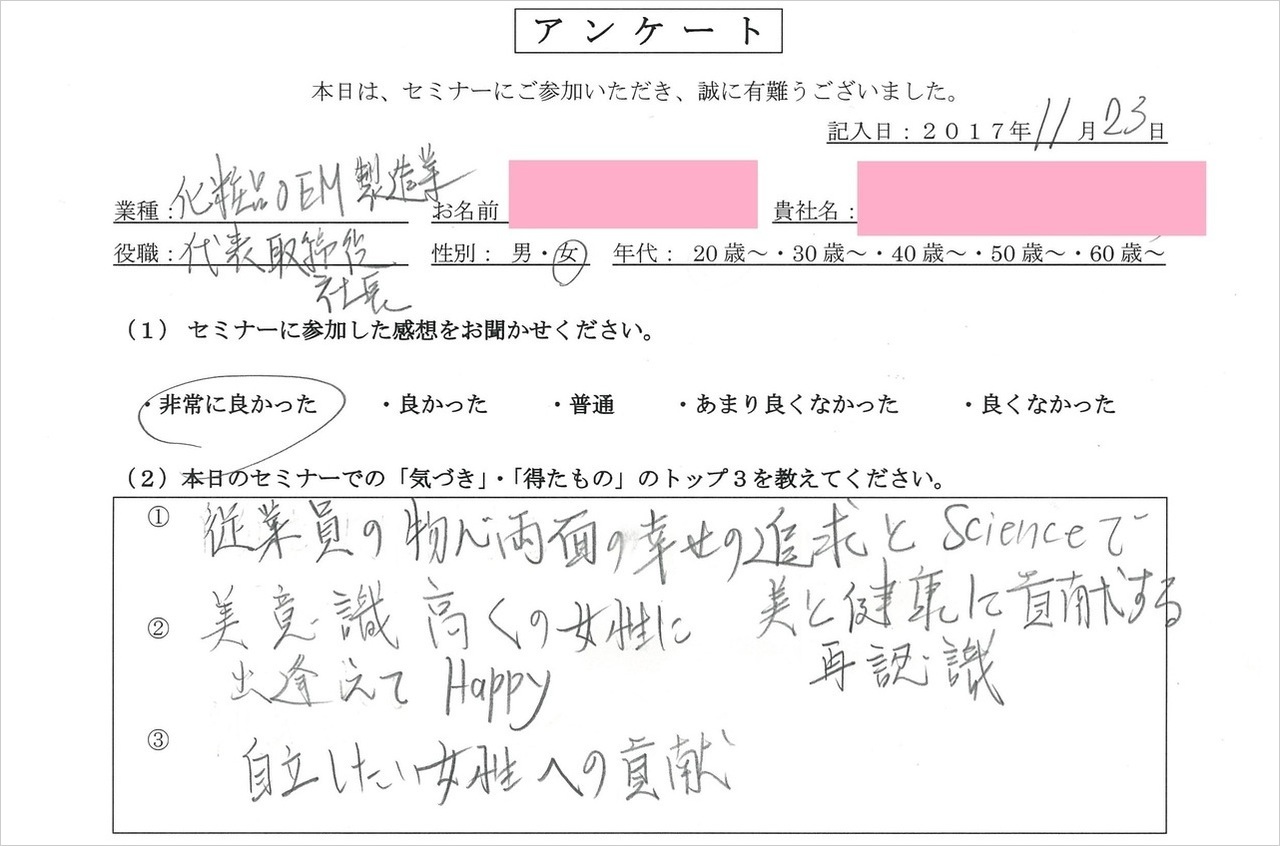 アンケート
本日は、セミナーにご参加いただき、誠に有難うございました。
記入日：２０１７年 11 月 23 日
業種：化粧品OEM製造業 お名前 貴社名：
役職：代表取締役 性別： 男・女 年代： 20歳～・30歳～・40歳～・50歳～・60歳～
社長
（１） セミナーに参加した感想をお聞かせください。
・非常に良かった ・良かった ・普通 ・あまり良くなかった ・良くなかった
（２）本日のセミナーでの「気づき」・「得たもの」のトップ３を教えてください。
① 従業員の物心両面の幸せの追求とScienceで
美と健康に貢献する
再認識
② 美意識高くの女性に
出逢えてHappy
③ 自立したい女性への貢献